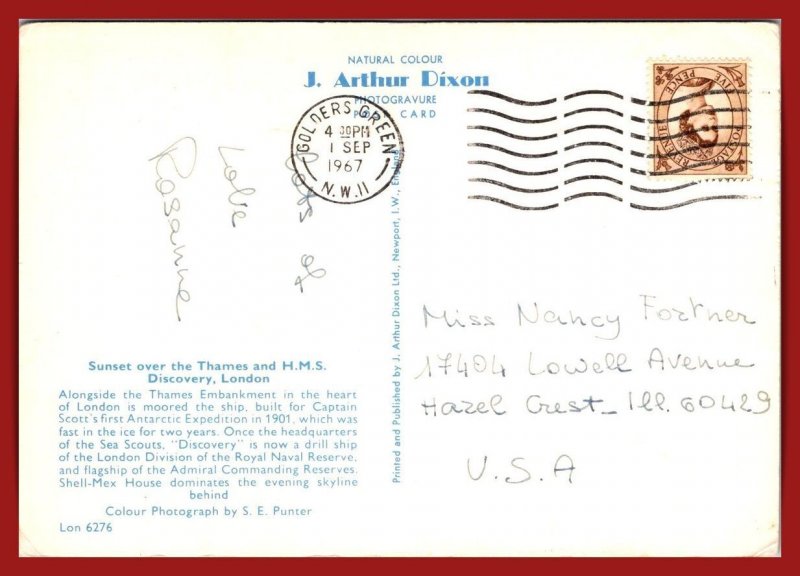 NATURAL COLOUR
J. Arthur Dixon
PHOTOGRAVURE
POST CARD
GOLDERS GREEN
4 30PM
1 SEP
1967
N.W.11
FIVE PENCE
POSTAGE
REVENUE
Lots of
Love
Rosanne
Printed and Published by J. Arthur Dixon Ltd., Newport, I.W., England
Miss Nancy Fortner
17404 Lowell Avenue
Hazel Crest_ Ill. 60429
U.S.A
Sunset over the Thames and H.M.S.
Discovery, London
Alongside the Thames Embankment in the heart
of London is moored the ship, built for Captain
Scott's first Antarctic Expedition in 1901, which was
fast in the ice for two years. Once the headquarters
of the Sea Scouts, "Discovery" is now a drill ship
of the London Division of the Royal Naval Reserve,
and flagship of the Admiral Commanding Reserves.
Shell-Mex House dominates the evening skyline
behind
Colour Photograph by S. E. Punter
Lon 6276